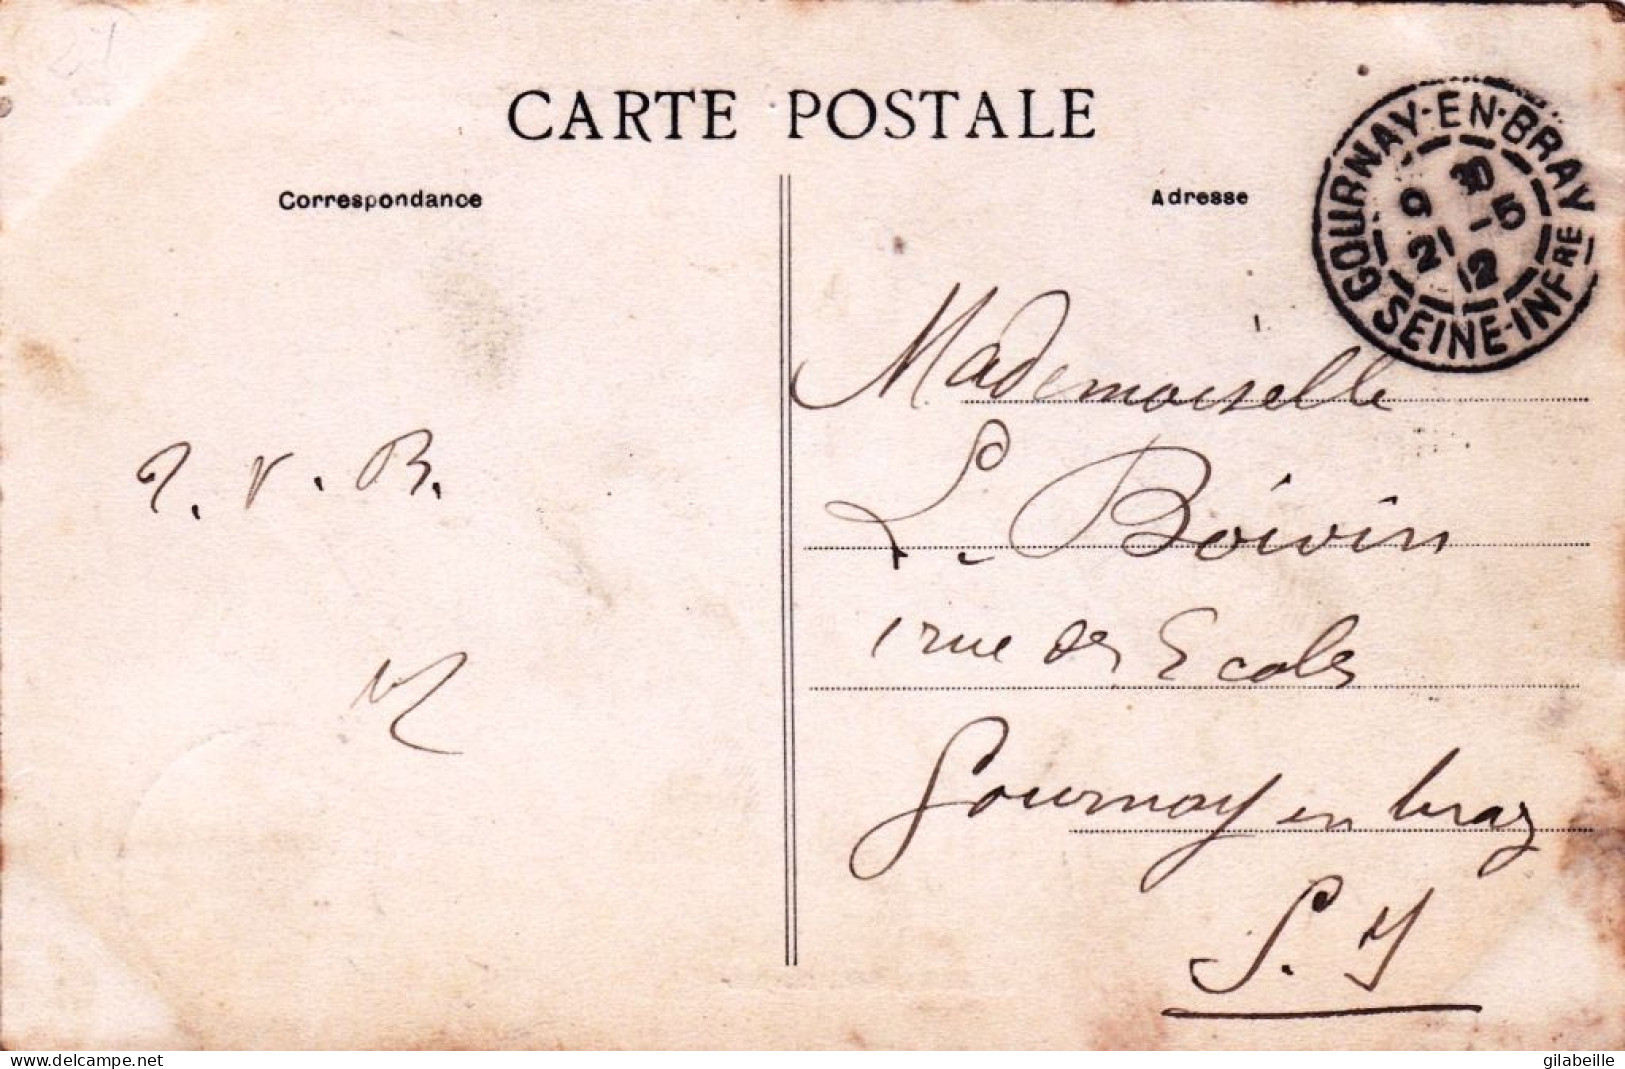 CARTE POSTALE
Correspondance
Adresse
GOURNAY-EN-BRAY
SEINE-INFRE
Mademoiselle
L. Boivin
1 rue des Ecoles
Gournay en bray
S. I
V. B.
gilabeille